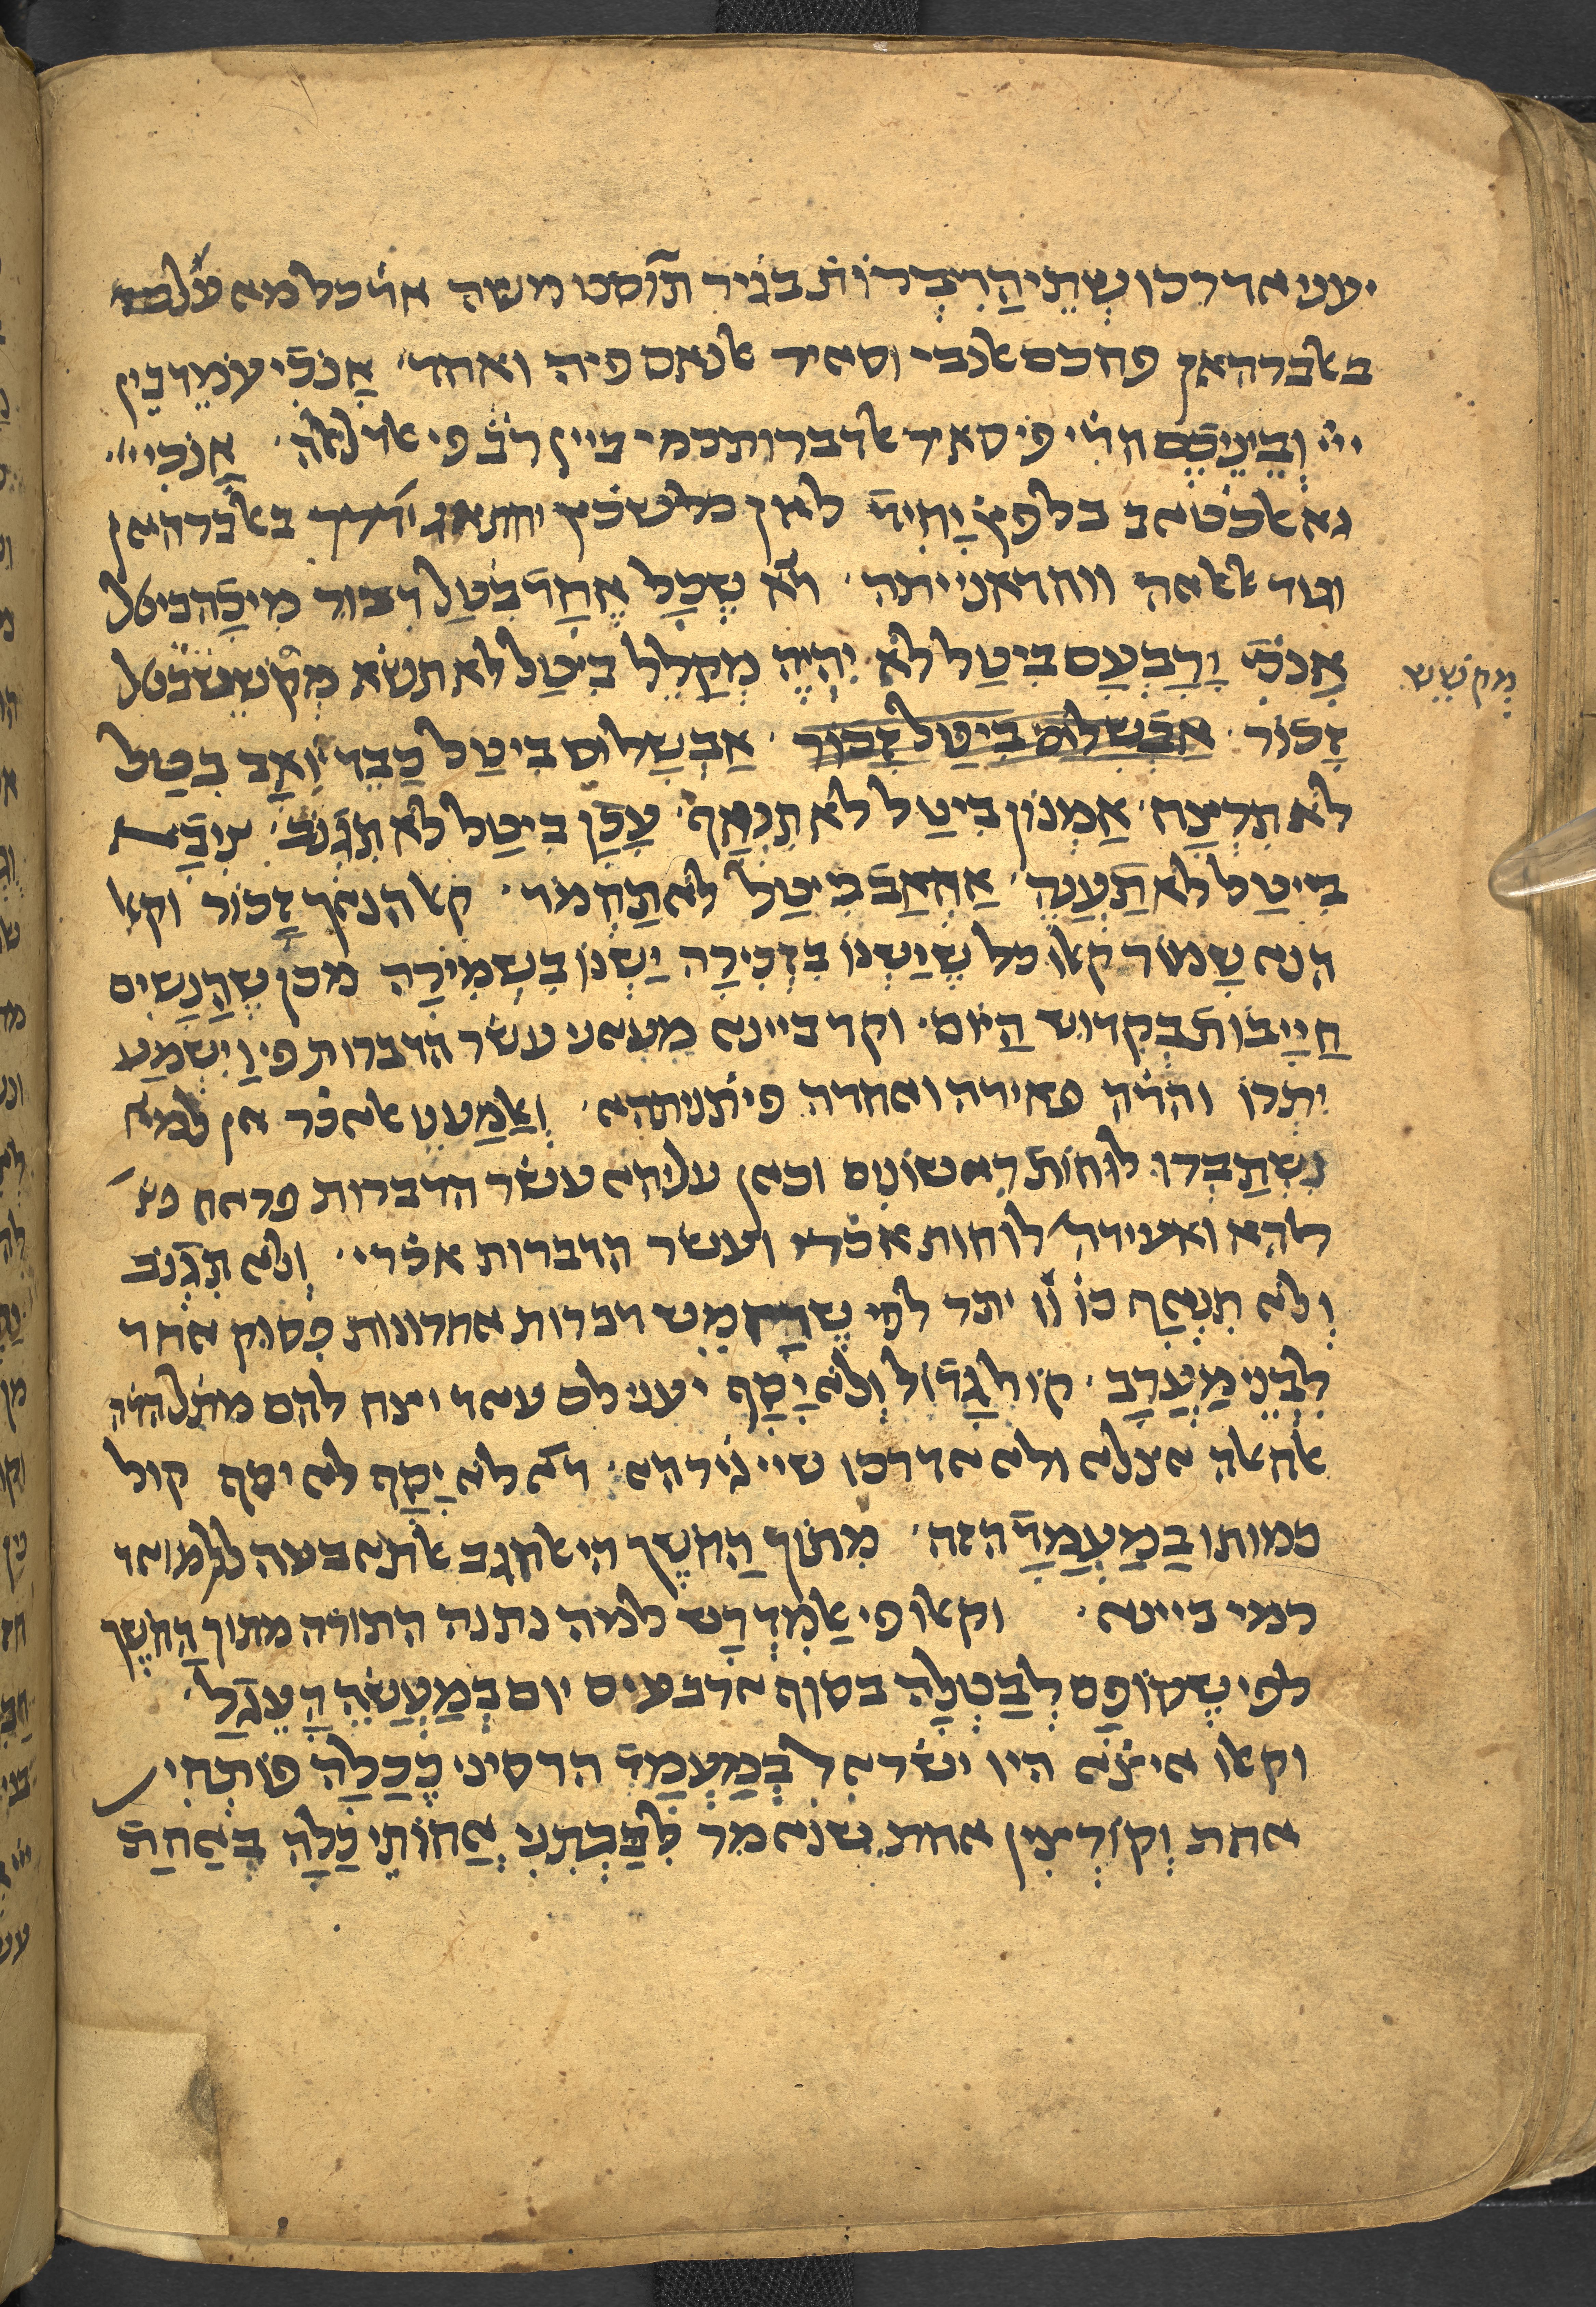 יעני אדרכו שְתֵי הַדִבְרוֹת בגיר תוסט משה אד כל מא עלם
באלברהאן פחכם אלנבי וסאיר אלנאס פיה ואחד אָנֹכִֿי עֹמֵד בֵין
ייי וּבֵינֵיכֶֿם הדֿי פי סאיר אלדברות כמי ביין רבֿ פי אלדלאלה אָנֹכִֿי ייי
גא אלכטאב בלפץֿ יָחִידֿ לאן כל שכץ יחתאג ידרך באלברהאן
וגוד אללאה ווחדאניתה דֿא שֶכָל אֶחָדֿ בִטַל דִבור מִיכָהֿ ביטל
אָנֹכִֿי יָרָבְעָם בִיטַל לֹא יִהְיֶה מְקַלֵל בִיטַל לא תשא מְקֹשֵש בטל
מְקֹשֵש
זָכֿוֹר אַבְשָלוֹם בִיטַל זָכֿוֹר אַבְשָלוֹם בִיטַל כַבֵד יוֹאָב בִטַל
לֹא תִרְצַח אַמְנוֹן בִיטַל לֹא תִנְאַף עָכָֿן בִיטַל לֹא תִגְֿנֹב צִיבָֿא
בִיטַל לֹא תַֿעֲנֶה אַחְאָבֿ בִיטַל לֹא תַֿחְמֹד קאל הנאך זָכֿוֹר וקאל
הנא שָמוֹר קאלו כל שֶיֶשְנוֹ בִזְכִֿירָה יֶשְנוֹ בִשְמִירָה מכאן שֶהַנָשִים
חַיָיבֿוֹת בְקִדוּש הַיוֹם וקד ביינא מעאני עשר הדברות פי וַיִשְמַע
יִתְֿרוֹ והדֿה פאידה ואחדה פי תֿניתהא וְאֵמַעֲט אלאכֿר אן למא
נִשְתַבְרוּ לוּחוֹת רִאשוֹנִים וכאן עליהא עשר הדברות פראח
להא ואעידה לוחות אכֿרי ועשר הדברות אכֿרי וְלֹא תִֿגְֿנֹב
וְלֹא תִֿנְאַף כו וו יתר לפי שֶהֶחָמֵש דברות אחרונות פָסוּק אֶחד
לִבְֿנֵי מַעֲרָב קוֹל גָדֿוֹל וְלֹא יָסָף יעני לם עאד ויצח להם מתֿל הדֿה
אלחאלה אצלא ולא אדרכו שיי גירהא דֿא לֹא יָסָף לא יסף קול
כמותו בַמַעֲמָדֿ הזה מִתוֹךֿ הַחֹשֶךֿ הי אלחגב אלתאבעה ללמואד
כמי ביינא וקאלו פי אלמִדְרָש למה נתנה התורה מתוך הַחֹשֶךֿ
לפי שֶסוֹפָם לְבַטְלָהּ בסוף ארבעים יום בְמַעֲשֵה הָעֵגֶל
וקאלו איצֿא היו ישראל בְמַעֲמָדֿ הר סיני כְכַלָה פוֹתְֿחִין
אחת וְקוֹרְצִין אחת שנאמר לִבַבְתִֿנִי אֲחוֹתִֿי כַלָה בְאַחַתֿ